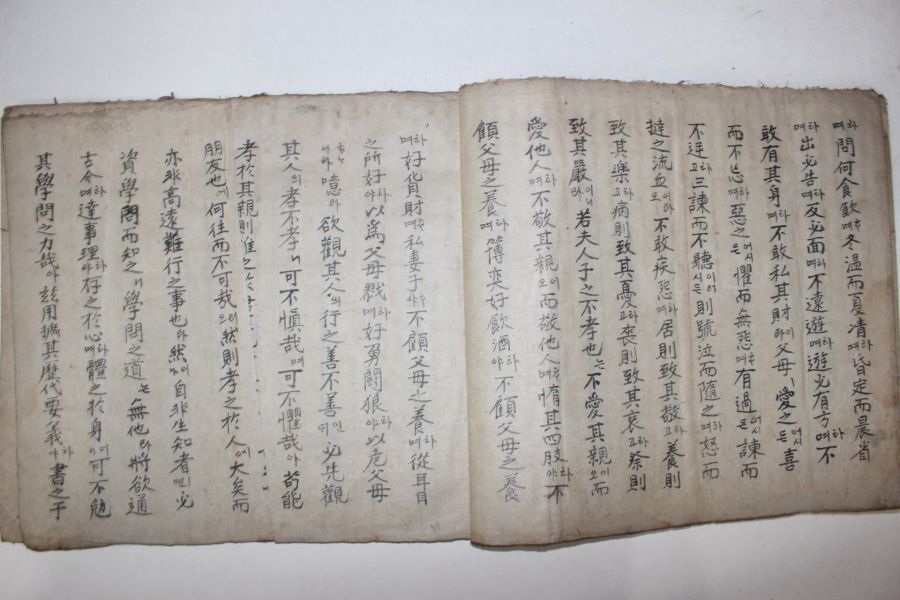 하며問何食飲하며冬温而夏凊하며昏定而晨省
하며出必告하며反必面하며不遠遊하며遊必有方하며不
敢有其身하며不敢私其財이라父母愛之어시든喜
而不忘하며惡之어시든懼而無怨하며有過어시든諫而
不逆하고三諫而不聽이어시든則號泣而隨之하며怒而
撻之流血이라도不敢疾怨하며居則致其敬하고養則
致其樂하고病則致其憂하고喪則致其哀하고祭則
致其嚴이니라若夫人子之不孝也는不愛其親이오而
愛他人하며不敬其親이오而敬他人하며惰其四肢하야不
顧父母之養하며簙奕好飲酒하야不顧父母之養
하며好貨財하며私妻子하야不顧父母之養하며從耳目
之所好하야以爲父母戮하며好勇鬪狠하야以危父母
하나니라噫라欲觀其人의行之善不善인댄必先觀
其人의孝不孝니可不愼哉며可不懼哉아苟能
孝於其親則推之於
朋友也에何往而不可哉오리然則孝之於人에大矣而
亦非高遠難行之事也라然이나自非生知者면必
資學問而知之니學問之道는無他라將欲通
古今하며達事理하야存之於心하며體之於身이니可不勉
其學問之力哉아玆用摭其歷代要義하야書之于